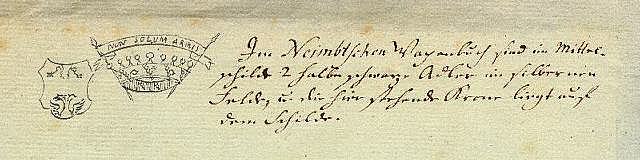 NON SOLUM ARMIS
Im Neimbtschen Wapenbuch sind im Mittel-
schilde 2 halbe schwarze Adler im silbernen
Felde, u die hier stehende Krone liegt auf
dem Schilde.